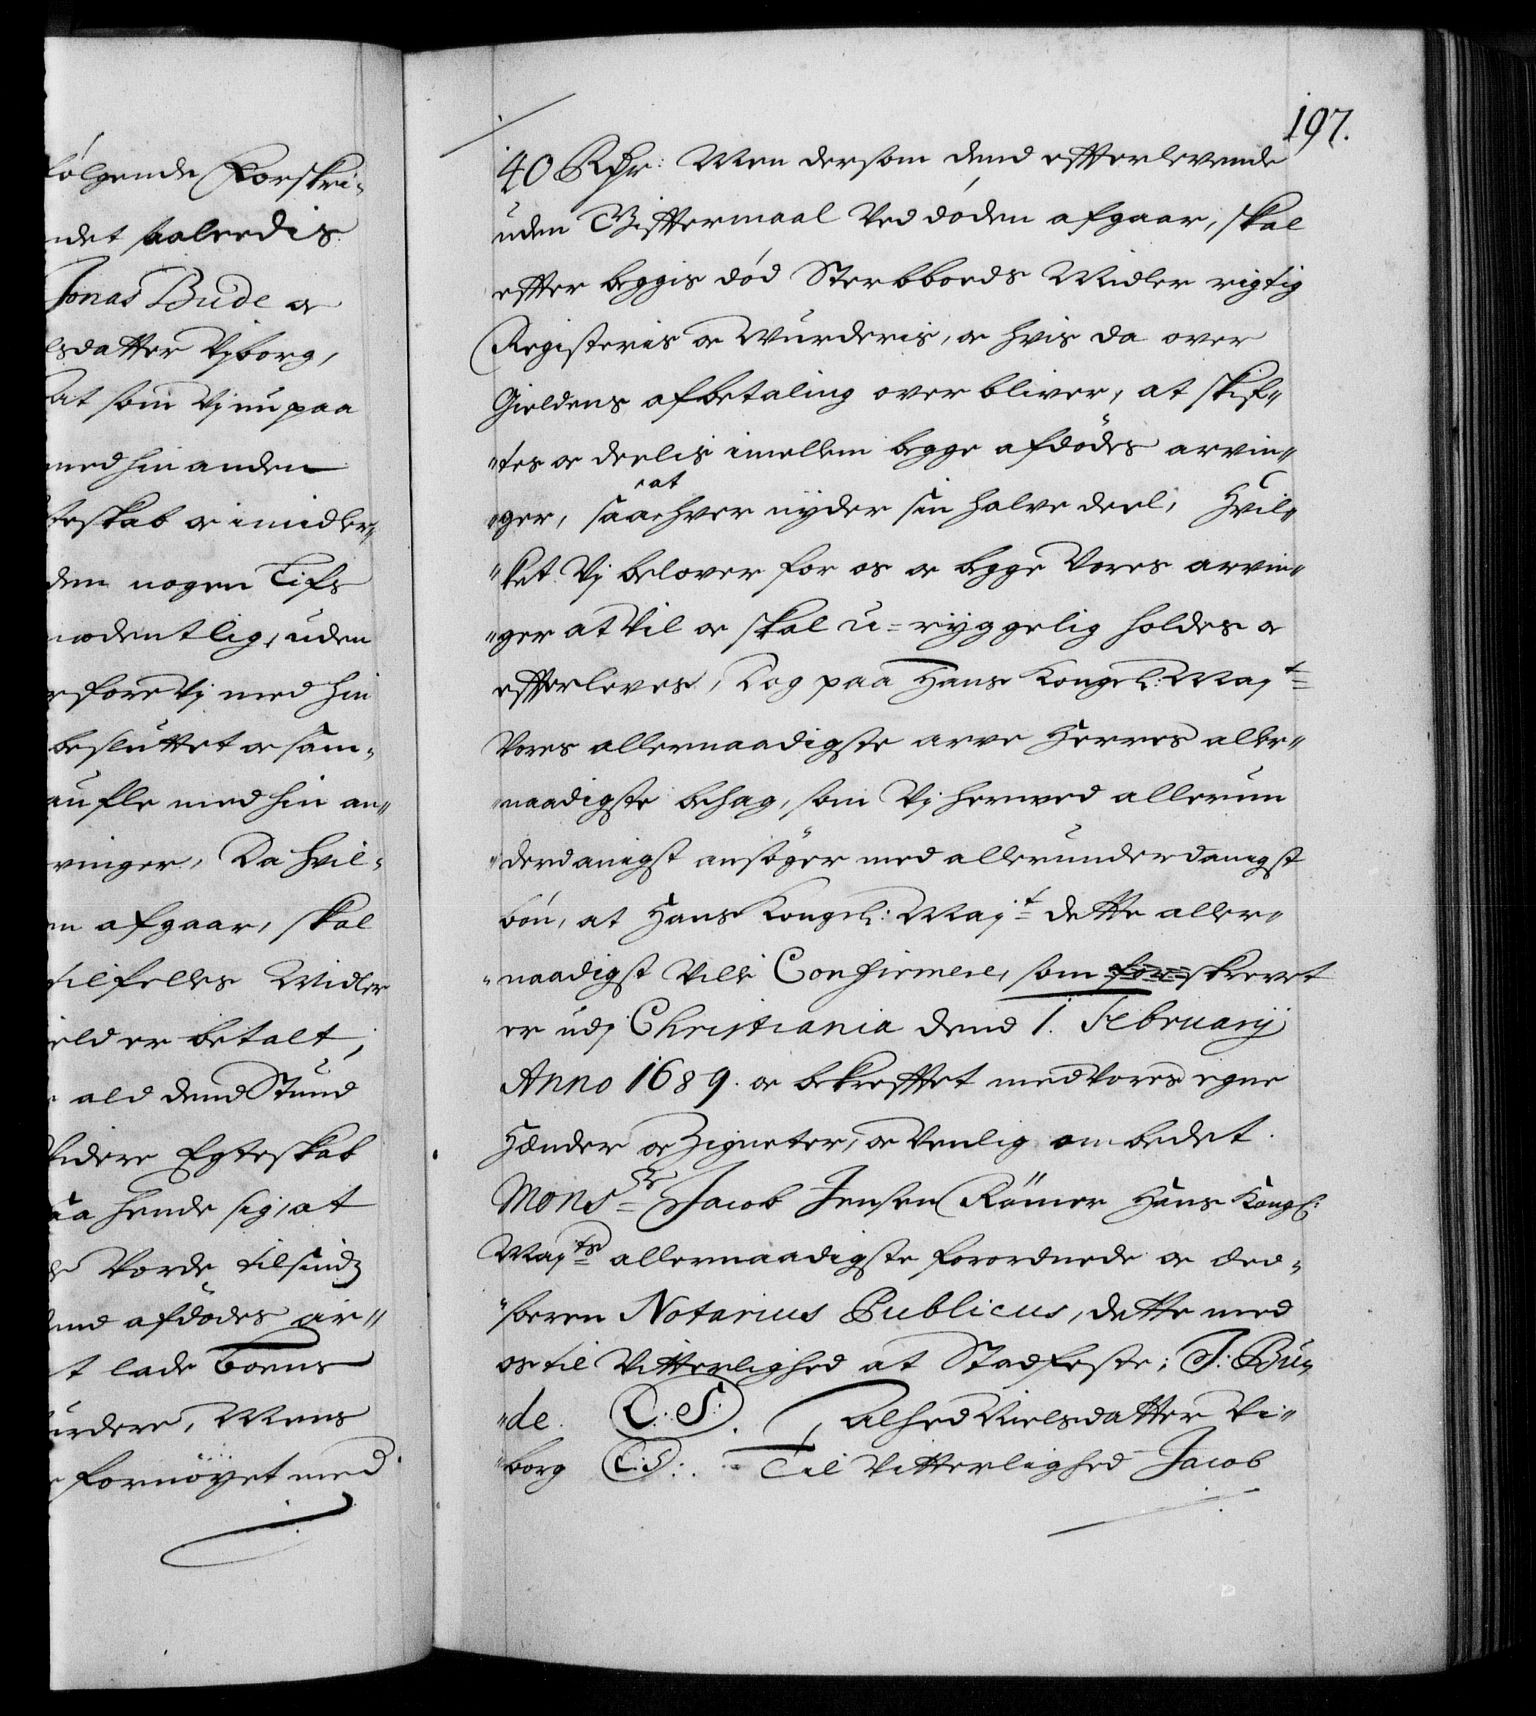 følgende Forskri-
ndet saaledis
Jonas Bude oc
lsdatter Vjborg,
at som Vj nu paa
med hin anden
teskab oc imidler-
den nogen Lifs
nodentlig, uden
rfore Vj med hin
besluttet oc sam-
med hin an-
vinger, Da hvil-
en afgaar, skal
tilfelles Midler
ield er betalt,
ald dend Stund
Videre Egteskab
aa hende sig, at
Vorde tilsindz
end afdødes ar-
t lade Boens
urdere, Mens
fornøyet med
197.
40 Rdr: Men dersom dend efterlevende
uden Giftermaal Ved døden afgaar, skal
efter beggis død Sterbboeds Midler rigtig
Registeris oc Wurderis, oc hvis da over
Gieldens afbetaling over bliver, at skif-
tes oc deelis imellem begge afdødes arvin-
ger, saa at hver nyder sin halve deel, Hvil-
ket Vj belover for os oc begge Vores arvin-
ger at Vil oc skal u-ryggelig holdes oc
efterleves, Dog paa Hans Kongel: Maj:t
Vores allernaadigste arve Herres aller-
naadigste behag, som Vj hermed allerun
derdanigst ansøger med allerunderdanigst
bøn, at Hans Kongel: Maj:t dette aller-
naadigst Ville Confirmere, som for skrevet
er udj Christiania dend 1. Februarij
Anno 1689. oc bekreftet med Vores egne
Hænder oc Zigneter, oc Venlig ombedet
Monsr Jacob Jensen Römer Hans Kongl:
Maj:ts allernaadigste forordnede oc æd-
soren Notarius Publicus, dette med
os til Vitterlighed at Stadfeste; J: Bu-
de. L: S:. Alhed Nielsdatter Vi-
borg L:S:. Til Vitterlighed Jacob